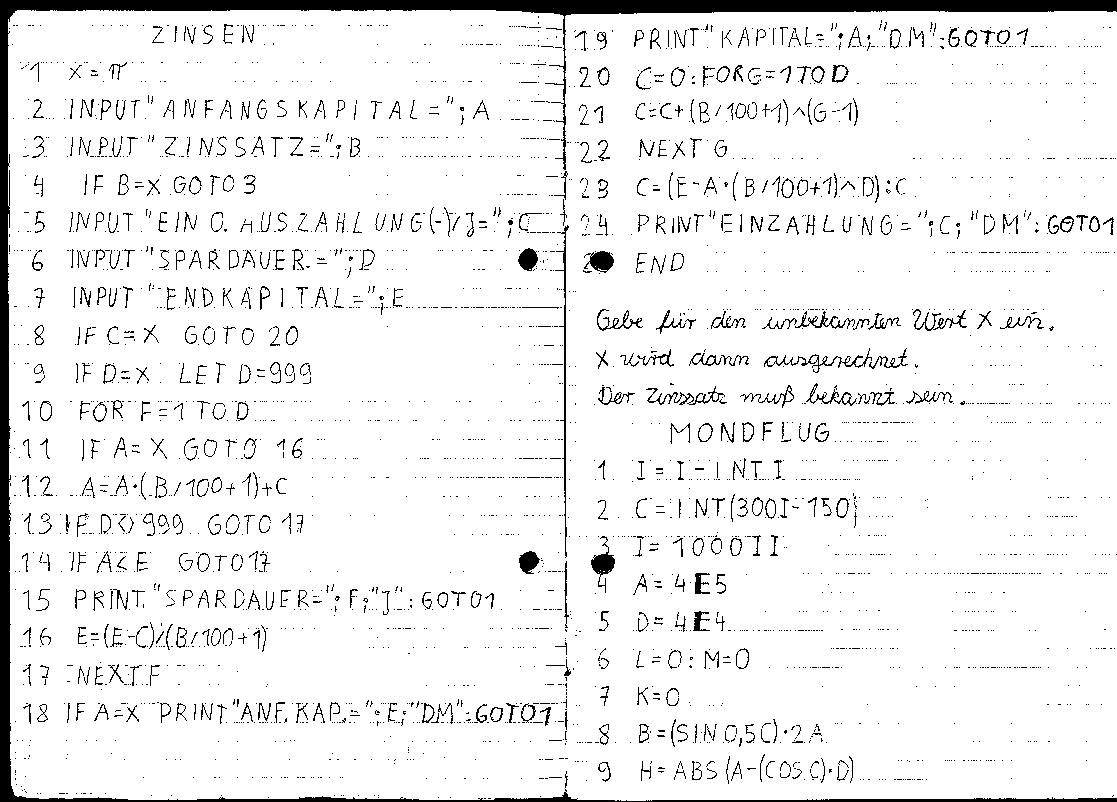 ZINSEN
1 X=π
2 INPUT"ANFANGSKAPITAL=";A
3 INPUT"ZINSSATZ=";B
4 IF B=X GOTO3
5 INPUT "EIN O. AUSZAHLUNG(-)/J=";C
6 INPUT "SPARDAUER=";D
7 INPUT "ENDKAPITAL=";E
8 IF C=X GOTO 20
9 IF D=X LET D=999
10 FOR F=1 TO D
11 IF A=X GOTO 16
12 A=A·(B/100+1)+C
13 IF D<>999 GOTO 17
14 IF A<E GOTO17
15 PRINT "SPARDAUER=";F;"J":GOTO1
16 E=(E-C)/(B/100+1)
17 NEXT F
18 IF A=X PRINT"ANF.KAP.=";E;"DM":GOTO1
19 PRINT"KAPITAL=";A;"DM":GOTO1
20 C=0:FORG=1TOD
21 C=C+(B/100+1)^(G-1)
22 NEXT G
23 C=(E-A·(B/100+1)^D):C
24 PRINT"EINZAHLUNG=";C;"DM":GOTO1
END
Gebe für den unbekannten Wert X ein.
X wird dann ausgerechnet.
Der Zinssatz muß bekannt sein.
MONDFLUG
1 I=I-INT I
2 C=INT(300I-150)
3 J=1000II
4 A=4E5
5 D=4E4
6 L=0:M=0
7 K=0
8 B=(SIN 0,5C)·2A
9 H=ABS(A-(COS C)·D)